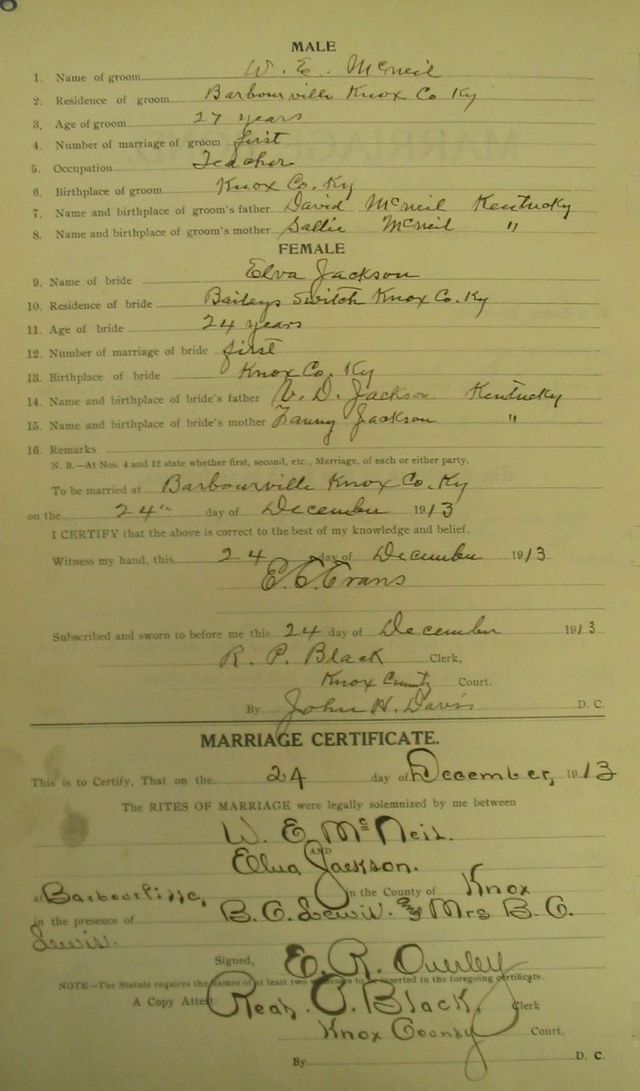 8
MALE
1. Name of groom W. E. McNeil
2. Residence of groom Barbourville Knox Co Ky
3. Age of groom 27 years
4. Number of marriage of groom first
5. Occupation Teacher
6. Birthplace of groom Knox Co. Ky
7. Name and birthplace of groom's father David McNeil Kentucky
8. Name and birthplace of groom's mother Sallie McNeil "
FEMALE
9. Name of bride Elva Jackson
10. Residence of bride Baileys Switch Knox Co. Ky
11. Age of bride 24 years
12. Number of marriage of bride first
13. Birthplace of bride Knox Co. Ky
14. Name and birthplace of bride's father D. Jackson Kentucky
15. Name and birthplace of bride's mother Fanny Jackson "
16. Remarks
N. B.—At Nos. 4 and 12 state whether first, second, etc., Marriage, of each or either party.
To be married at Barbourville Knox Co. Ky
on the 24" day of December 1913
I CERTIFY that the above is correct to the best of my knowledge and belief.
Witness my hand, this 24 day of December 1913
E. C. Evans
Subscribed and sworn to before me this 24 day of December 1913
R. P. Black Clerk,
Knox County Court.
By John H. Davis D. C.
MARRIAGE CERTIFICATE.
This is to Certify, That on the 24 day of December, 1913
The RITES OF MARRIAGE were legally solemnized by me between
W. E. McNeil.
AND
Elva Jackson.
at in the County of Knox
in the presence of B. C. Lewis. and Mrs B. C.
Lewis.
Signed, E. R. Overley
NOTE—The Statute requires the names of at least two to be inserted in the foregoing certificate.
A Copy Attest: Read P. Black, Clerk
Knox County Court,
By D. C.